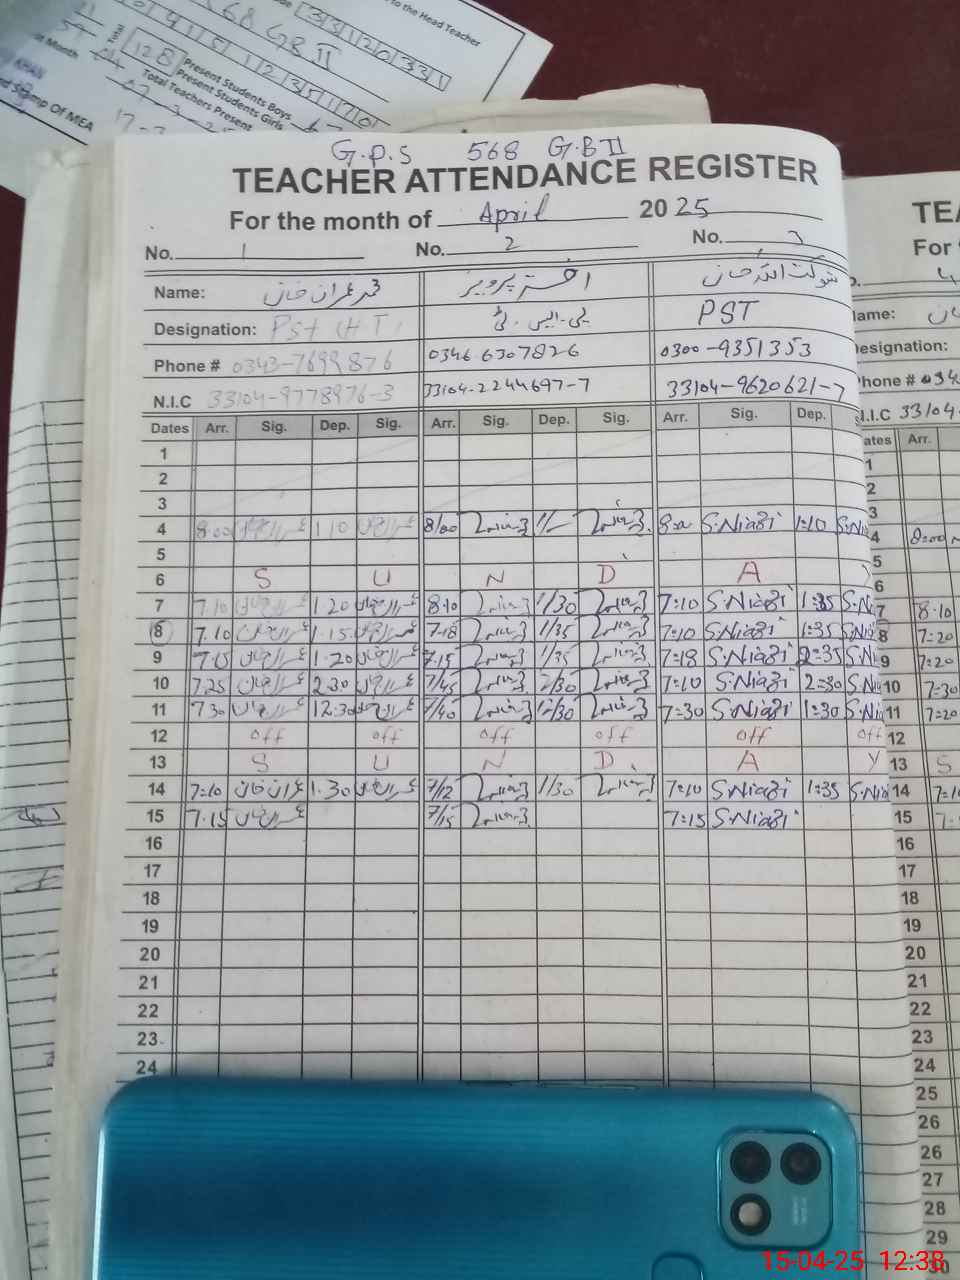 to the Head Teacher
3 3 1 2 0 3 3 1
568 GB II
Total
128
Present Students Boys
Present Students Girls
Total Teachers Present
Stamp Of MEA
G.P.S 568 G.B II
TEACHER ATTENDANCE REGISTER
For the month of April 2025
No. 1 No. 2 No. 3
Name: محمد عمران خان اختر پرویز شوکت اللہ خان
Designation: PST (H.T) پی.ایس.ٹی PST
Phone # 0343-7699876 0346.6307826 0300-9351353
N.I.C 33104-9778976-3 33104-2244697-7 33104-9620621-7
Dates Arr. Sig. Dep. Sig. Arr. Sig. Dep. Sig. Arr. Sig. Dep.
1
2
3
4 8.00 1.10 8/00 1/- 8:00 S.Niazi 1:10 S.Ni
5
6 S U N D A
7 7.10 1.20 8.10 1/30 7:10 S.Niazi 1:35 S.N
8 7.10 1.15 7.18 1/35 7:10 S.Niazi 1:35 S.N
9 7.15 1.20 7.15 1/35 7:18 S.Niazi 2:35 S.N
10 7.25 2.30 7/45 2/30 7:10 S.Niazi 2:30 S.N
11 7.30 12.30 7/40 12/30 7:30 S.Niazi 1:30 S.N
12 off off off off off off
13 S U N D A Y
14 7:10 عمران خان 1.30 7/12 1/30 7:10 S.Niazi 1:35 S.Nia
15 7.15 7/15 7:15 S.Niazi
16
17
18
19
20
21
22
23
24
TEA
For
Name:
Designation:
Phone # 034
N.I.C 33104-
Dates Arr.
1
2
3
4 8:00
5
6
7 8.10
8 7=20
9 7=20
10 7=30
11 7=20
12
13 S
14 7=1
15 7=
16
17
18
19
20
21
22
23
24
25
26
26
27
28
29
30
15-04-25 12:38